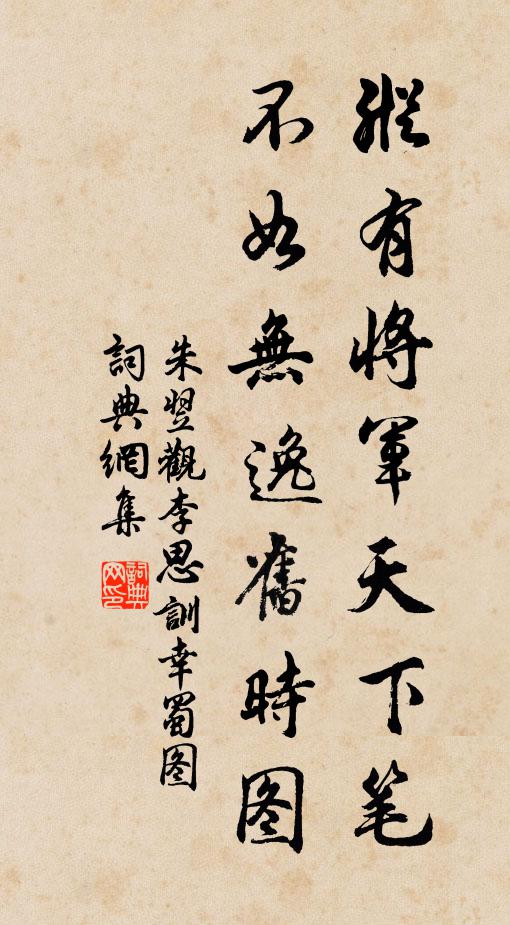 縱有將軍天下笔
不如無逸舊時图
朱翌觀李思訓幸蜀图
詞典網集
詞典
网印